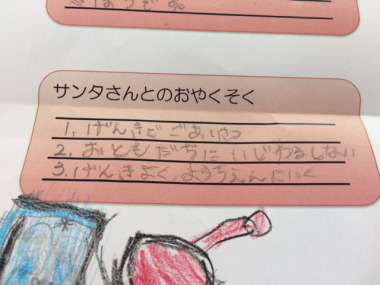 ほうでお
サンタさんとのおやくそく
1.げんきでごあいさつ
2.おともだちにいじわるしない
3.げんきよくようちえんにいく